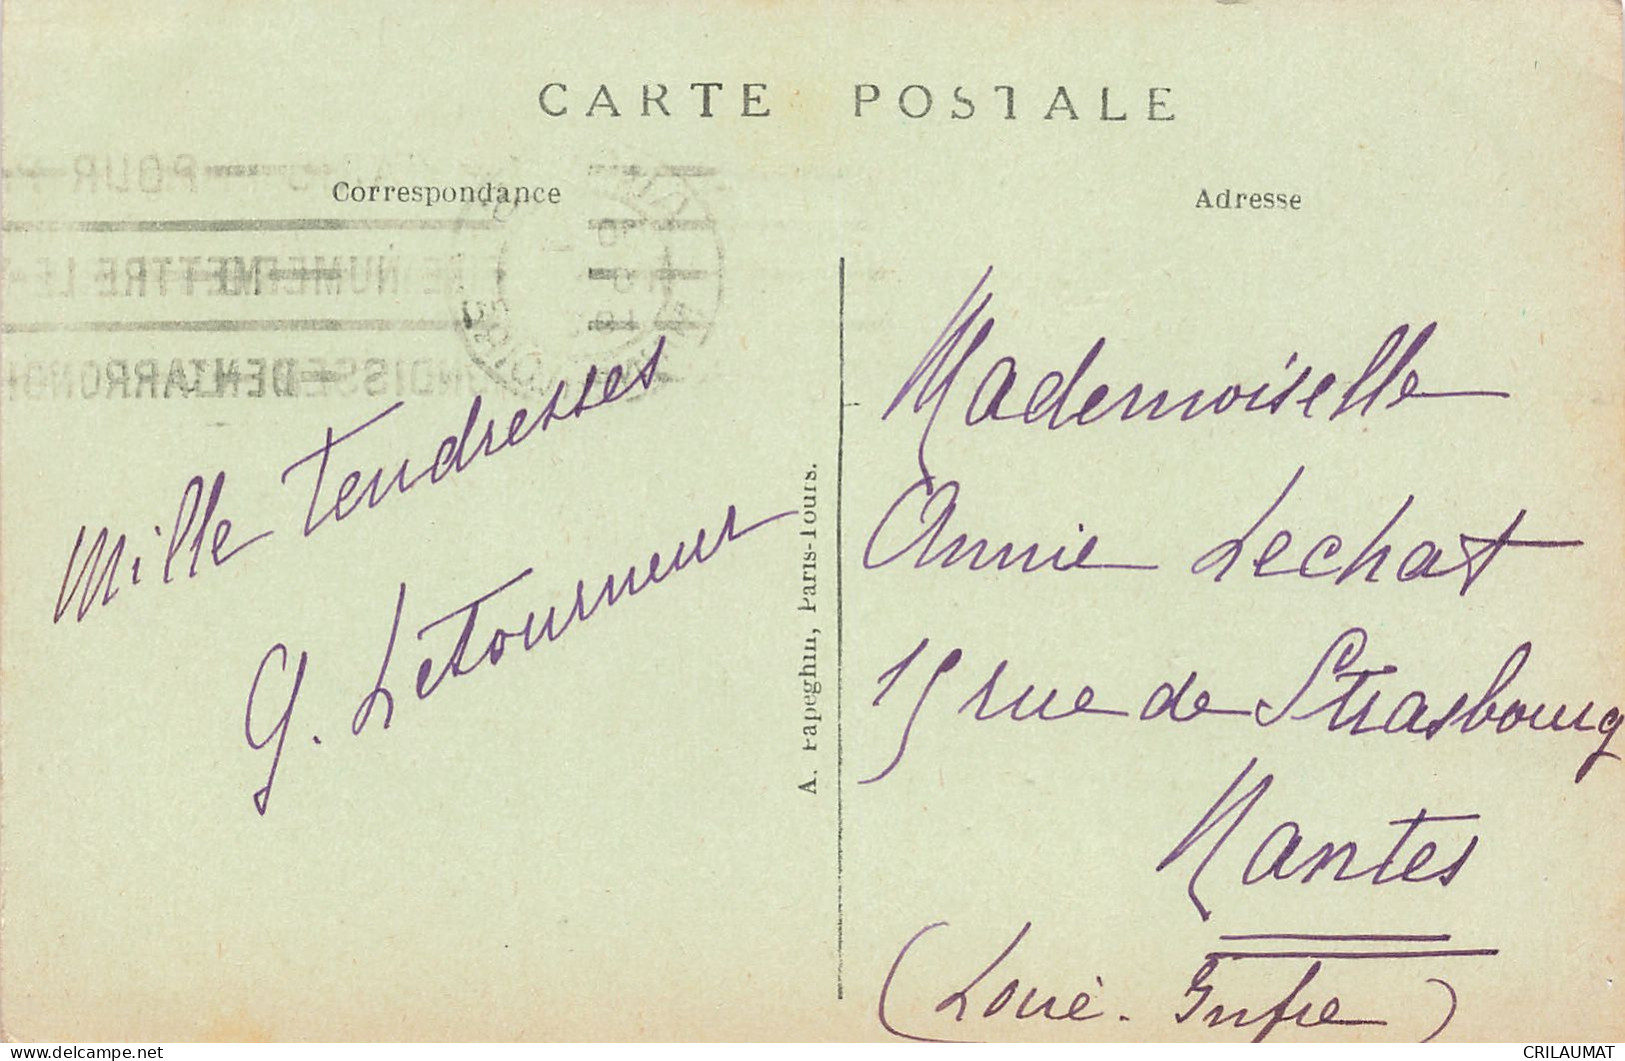 CARTE POSTALE
Correspondance
Adresse
Mille tendresses
G. Letourneur
A. Papeghin, Paris-Tours.
Mademoiselle
Annie Lechat
15 rue de Strasbourg
Nantes
(Loire-Infre)
delcampe.net
CRILAUMAT